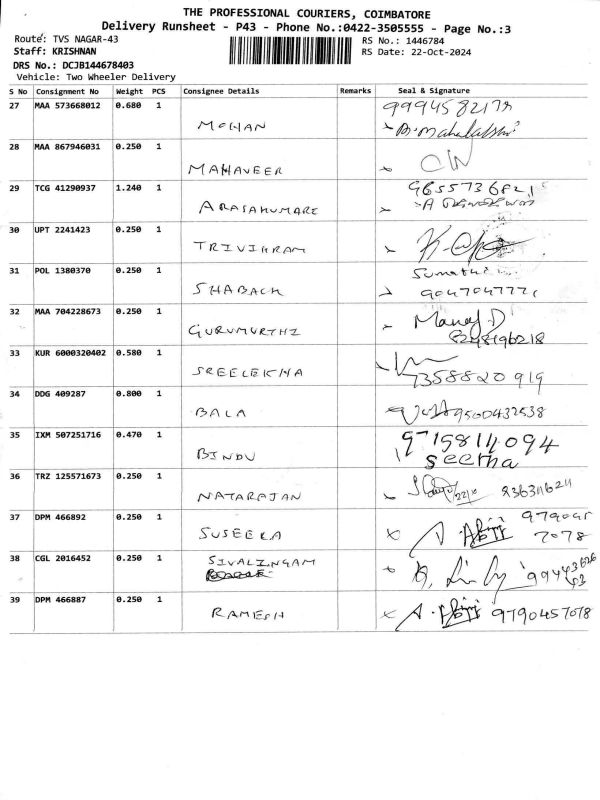 THE PROFESSIONAL COURIERS, COIMBATORE
Delivery Runsheet - P43 - Phone No.:0422-3505555 - Page No.:3
Route: TVS NAGAR-43
RS No.: 1446784
Staff: KRISHNAN
RS Date: 22-Oct-2024
DRS No.: DCJB144678403
Vehicle: Two Wheeler Delivery
S No Consignment No Weight PCS Consignee Details Remarks Seal & Signature
27 MAA 573668012 0.680 1
MOHAN
28 MAA 867946031 0.250 1
MAHAVEER
29 TCG 41290937 1.240 1
ARASAKUMARE
30 UPT 2241423 0.250 1
TRIVIKRAM
31 POL 1380370 0.250 1
SHABACK
32 MAA 704228673 0.250 1 Manoj D
GURUMURTHI 8248196218
33 KUR 6000320402 0.580 1
SREELEKHA 7358820919
34 DDG 409287 0.800 1
BALA 9500432538
35 IXM 507251716 0.470 1 9715814094
BINDU Seetha
36 TRZ 125571673 0.250 1
NATARAJAN
37 DPM 466892 0.250 1
SUSEELA 7078
38 CGL 2016452 0.250 1 SIVALINGAM
39 DPM 466887 0.250 1
RAMESH 9790457078